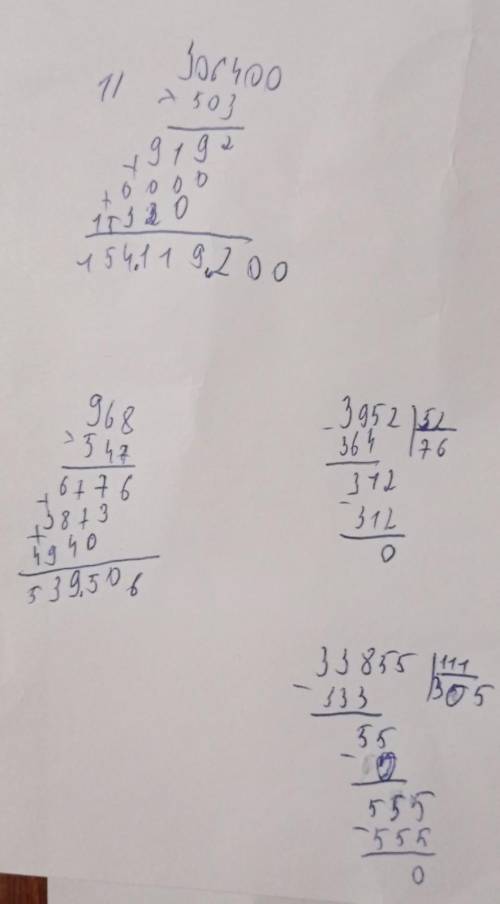 1) 306400
× 503
+ 9192
+ 0000
15320
154.119.200
968
× 547
+ 6776
+ 3873
4940
539.506
- 3952 | 52
364 | 76
- 312
312
0
33855 | 111
- 333 | 305
55
- 0
555
- 555
0